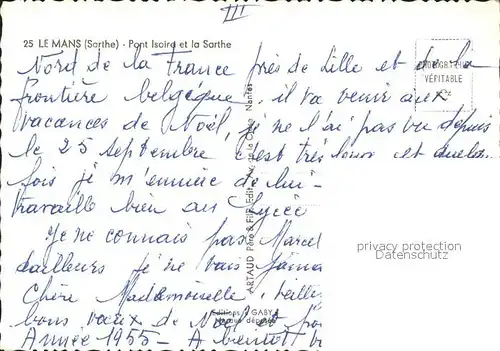 III
25 LE MANS (Sarthe) - Pont Isoird et la Sarthe
PHOTOGRAPHIE
VÉRITABLE
Nord de la France près de Lille et de la
frontière belgique, il va venir aux
vacances de Noël, je ne l'ai pas vu depuis
le 25 Septembre c'est très long et quelque
fois je m'ennuie de lui -
travaille bien au Lycée
Je ne connais pas Marcel
dailleurs je ne vais jamais
Chère Mademoiselle, veillez
bons vœux de Noël et
Année 1955 - A bientôt
ARTAUD Père & Fils Edit. Nantes
Editions GABY
Marque déposée
privacy protection
Datenschutz